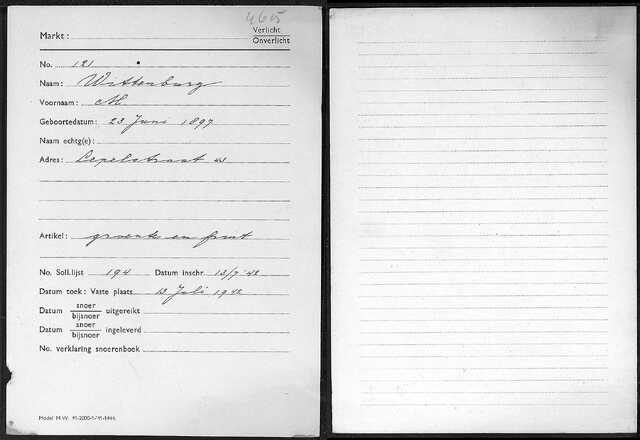 465
Markt :
Verlicht
Onverlicht
No. 121
Naam: Wittenburg
Voornaam: M
Geboortedatum: 23 Juni 1897
Naam echtg(e):
Adres: Lepelstraat
Artikel: groente en fruit
No. Soll.lijst 194 Datum inschr. 13/7/42
Datum toek: Vaste plaats 13 Juli 1942
Datum snoer bijsnoer uitgereikt
Datum snoer bijsnoer ingeleverd
No. verklaring snoerenboek
Model M.W.